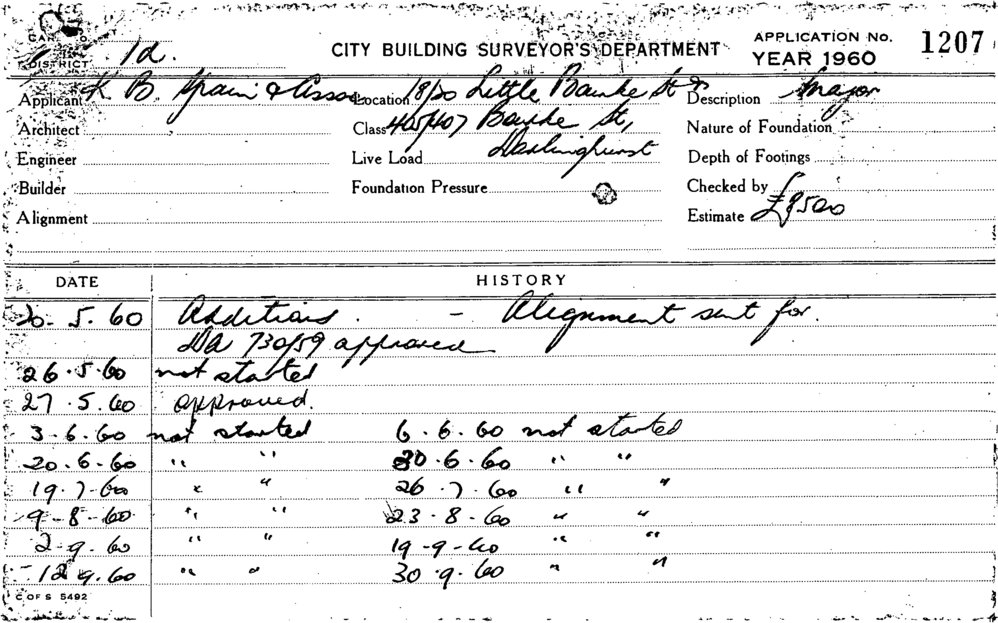 CARD No.
DISTRICT 1d.
CITY BUILDING SURVEYOR'S DEPARTMENT
APPLICATION No. 1207
YEAR 1960
Applicant K. B. & Assoc Location 18/20 Little Bourke St & Description Major
Architect Class 405/407 Bourke St, Nature of Foundation
Engineer Live Load Darlinghurst Depth of Footings
Builder Foundation Pressure Checked by
Alignment Estimate £8500
DATE HISTORY
20.5.60 Additions. - Alignment sent for.
DA 730/59 approved
26.5.60 not started
27.5.60 approved.
3.6.60 not started 6.6.60 not started
20.6.60 " " 30.6.60 " "
19.7.60 " " 26.7.60 " "
9-8-60 " " 23.8.60 " "
2-9.60 " " 19-9-60 " "
12.9.60 " " 30.9.60 " "
C OF S 5492